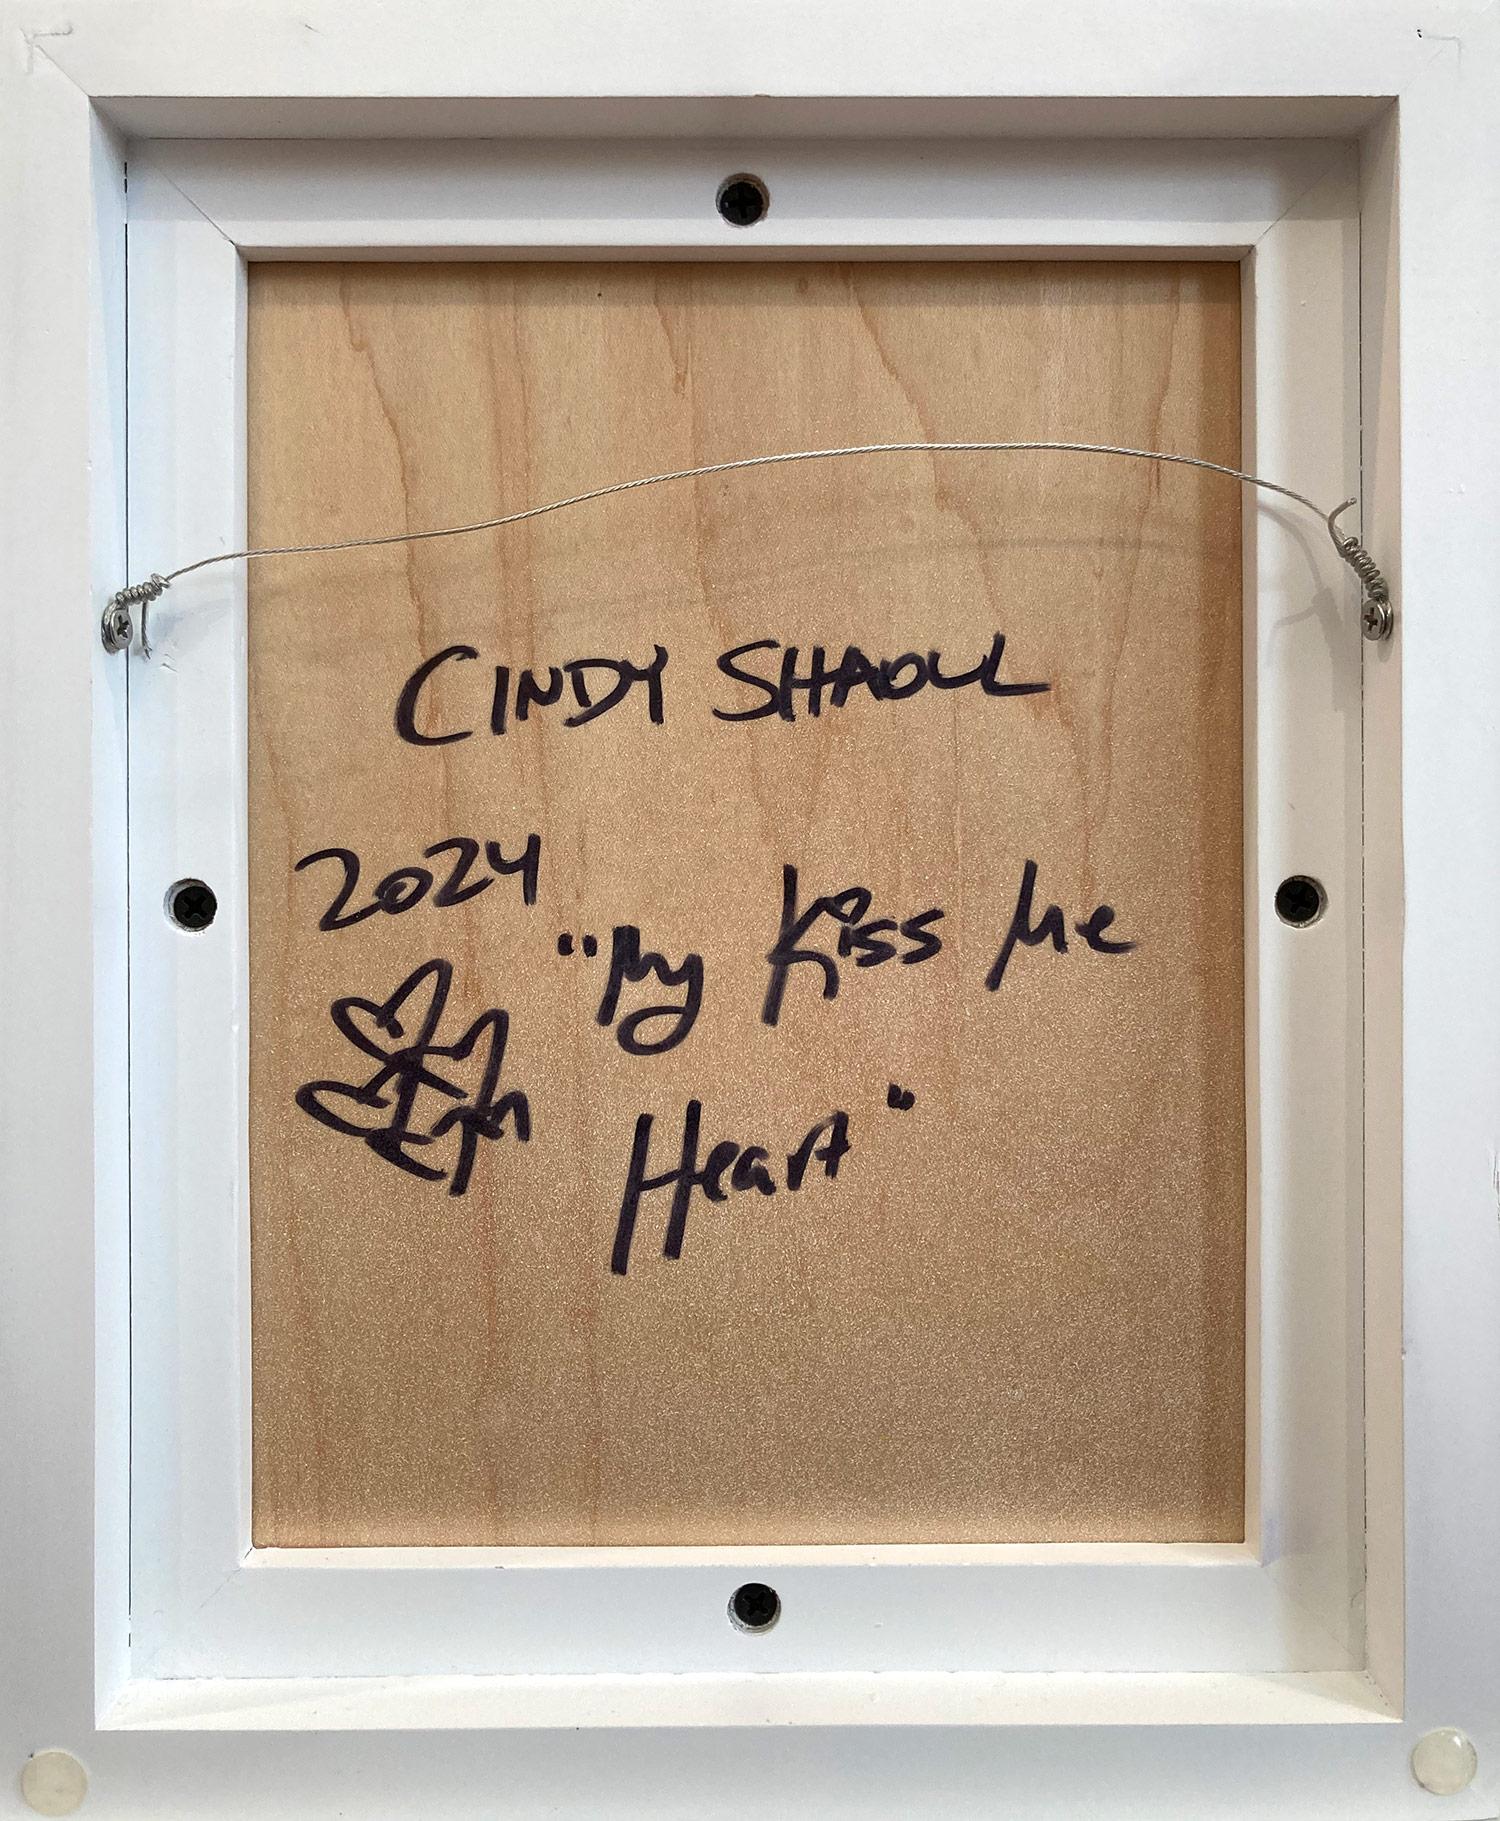 CINDY SHAOUL
2024
"My Kiss Me
Heart"